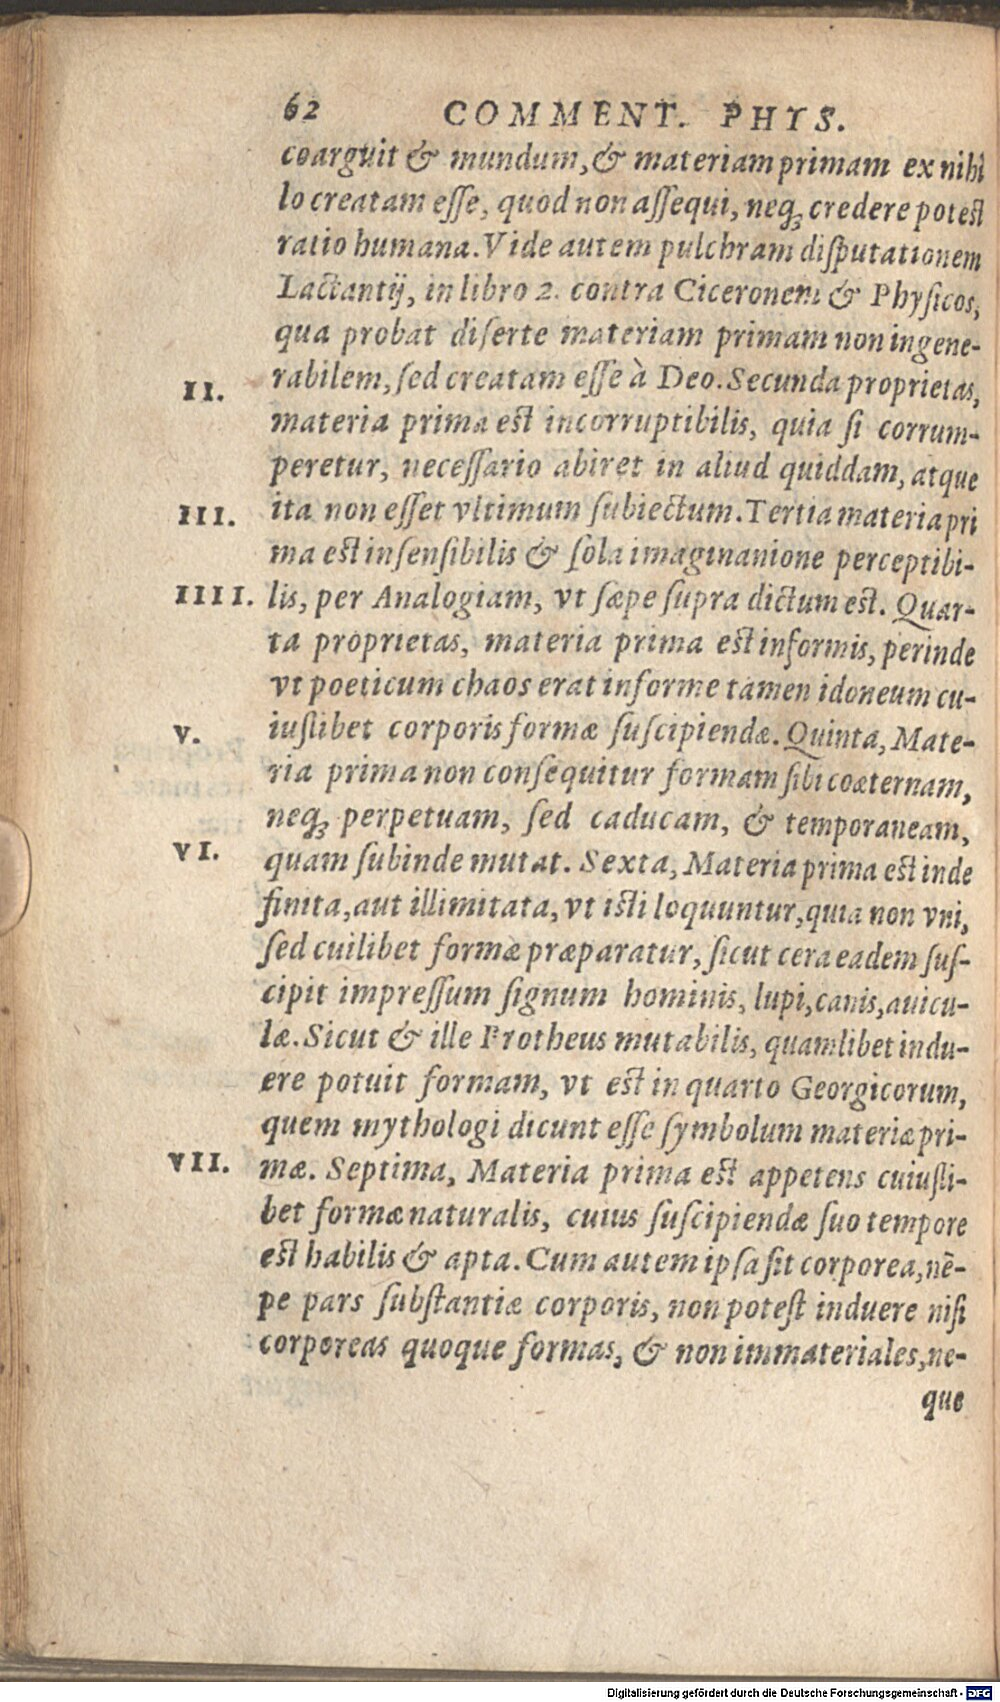 62 COMMENT. PHYS.
coarguit & mundum, & materiam primam ex nihi
lo creatam eſſe, quod non aſſequi, neq; credere poteſt
ratio humana. Vide autem pulchram diſputationem
Lactantij, in libro 2. contra Ciceronem & Phyſicos,
qua probat diſerte materiam primam non ingene-
II. rabilem, ſed creatam eſſe à Deo. Secunda proprietas,
materia prima eſt incorruptibilis, quia ſi corrum-
peretur, neceſſario abiret in aliud quiddam, atque
III. ita non eſſet vltimum ſubiectum. Tertia materia pri
ma eſt inſenſibilis & ſola imaginanione perceptibi-
IIII. lis, per Analogiam, vt ſæpe ſupra dictum eſt. Quar-
ta proprietas, materia prima eſt informis, perinde
vt poeticum chaos erat informe tamen idoneum cu-
V. iuſlibet corporis formæ ſuſcipiendæ. Quinta, Mate-
ria prima non conſequitur formam ſibi coæternam,
neq; perpetuam, ſed caducam, & temporaneam,
VI. quam ſubinde mutat. Sexta, Materia prima eſt inde
finita, aut illimitata, vt iſti loquuntur, quia non vni,
ſed cuilibet formæ præparatur, ſicut cera eadem ſuſ-
cipit impreſſum ſignum hominis, lupi, canis, auicu-
læ. Sicut & ille Protheus mutabilis, quamlibet indu-
ere potuit formam, vt eſt in quarto Georgicorum,
quem mythologi dicunt eſſe ſymbolum materiæ pri-
VII. mæ. Septima, Materia prima eſt appetens cuiuſli-
bet formæ naturalis, cuius ſuſcipiendæ ſuo tempore
eſt habilis & apta. Cum autem ipſa ſit corporea, nē-
pe pars ſubſtantiæ corporis, non poteſt induere niſi
corporeas quoque formas, & non immateriales, ne-
que
Digitalisierung gefördert durch die Deutsche Forschungsgemeinschaft - DFG